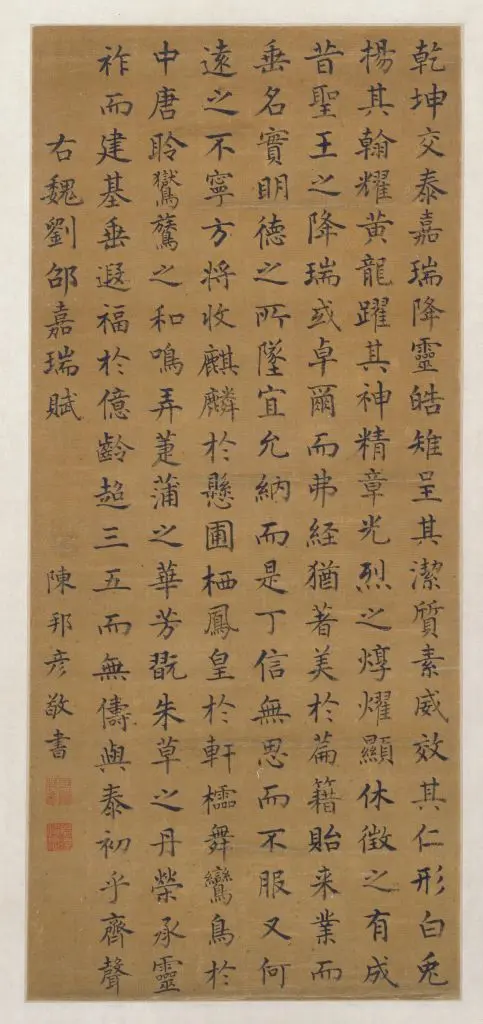 乾坤交泰嘉瑞降靈皓雉呈其潔質素威效其仁形白兎
楊其翰耀黃龍躍其神精章光烈之焞燿顯休徵之有成
昔聖王之降瑞或卓爾而弗経猶著美於篇籍貽来業而
垂名實明徳之所墜宜允納而是丁信無思而不服又何
遠之不寧方将收麒麟於懸圃栖鳳皇於軒櫺舞鸞鳥於
中唐聆鸑鷟之和鳴弄萐蒲之華芳翫朱草之丹榮承靈
祚而建基垂遐福於億齡超三五而無儔與泰初乎齊聲
右魏劉邵嘉瑞賦
陳邦彦敬書